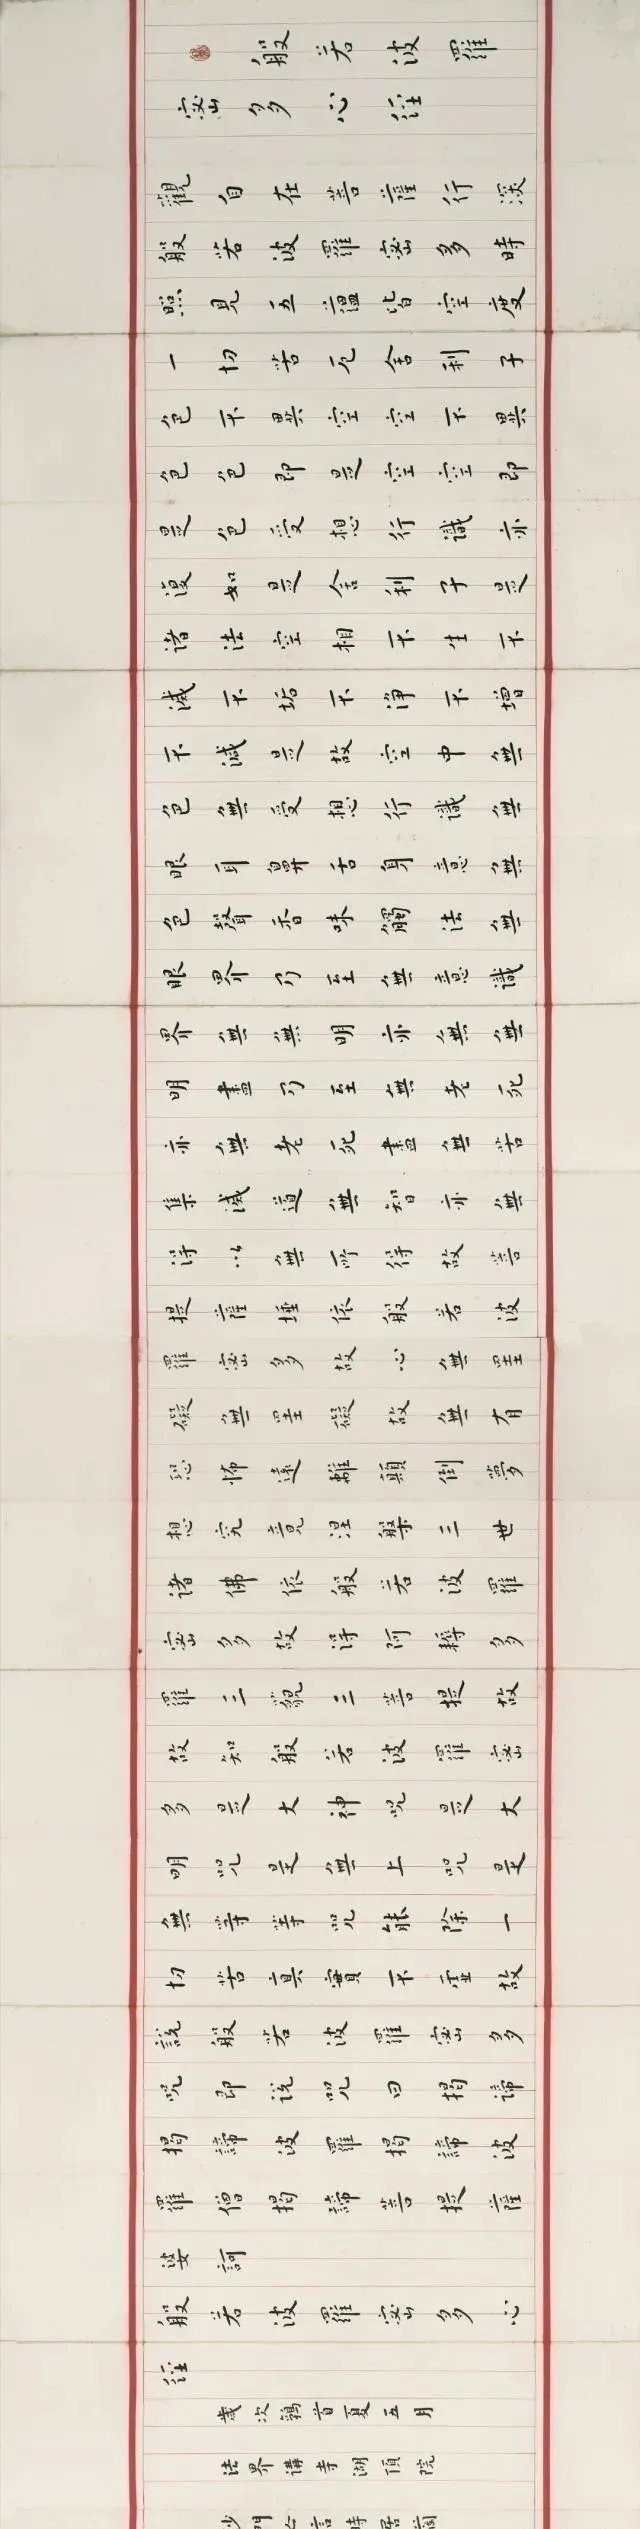 般若波羅
密多心經
觀自在菩薩行深
般若波羅密多時
照見五蘊皆空度
一切苦厄舍利子
色不異空空不異
色色即是空空即
是色受想行識亦
復如是舍利子是
諸法空相不生不
滅不垢不淨不增
不減是故空中無
色無受想行識無
眼耳鼻舌身意無
色聲香味觸法無
眼界乃至無意識
界無無明亦無無
明盡乃至無老死
亦無老死盡無苦
集滅道無智亦無
得以無所得故菩
提薩埵依般若波
羅密多故心無罣
礙無罣礙故無有
恐怖遠離顛倒夢
想究竟涅槃三世
諸佛依般若波羅
密多故得阿耨多
羅三藐三菩提故
故知般若波羅密
多是大神咒是大
明咒是無上咒是
無等等咒能除一
切苦真實不虛故
說般若波羅密多
咒即說咒曰揭諦
揭諦波羅揭諦波
羅僧揭諦菩提薩
婆訶
般若波羅密多心
經
歲次鶉首夏五月
法界講寺湖頂院
沙門